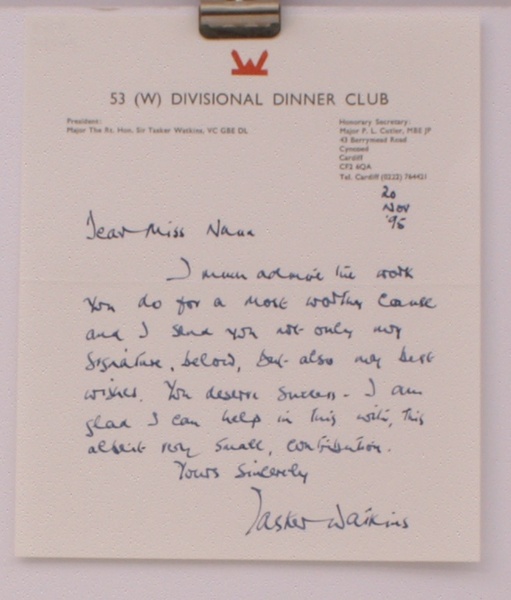 53 (W) DIVISIONAL DINNER CLUB
President:
Major The Rt. Hon. Sir Tasker Watkins, VC GBE DL
Honorary Secretary:
Major P. L. Cutler, MBE JP
43 Berrymead Road
Cyncoed
Cardiff
CF2 6QA
Tel. Cardiff (0222) 764421
20
Nov
'95
Dear Miss Nana
I much admire the work
You do for a most worthy cause
and I send you not only my
Signature, below, but also my best
wishes. You deserve success - I am
glad I can help in this with, this
albeit very small, contribution.
Yours Sincerely
Tasker Watkins